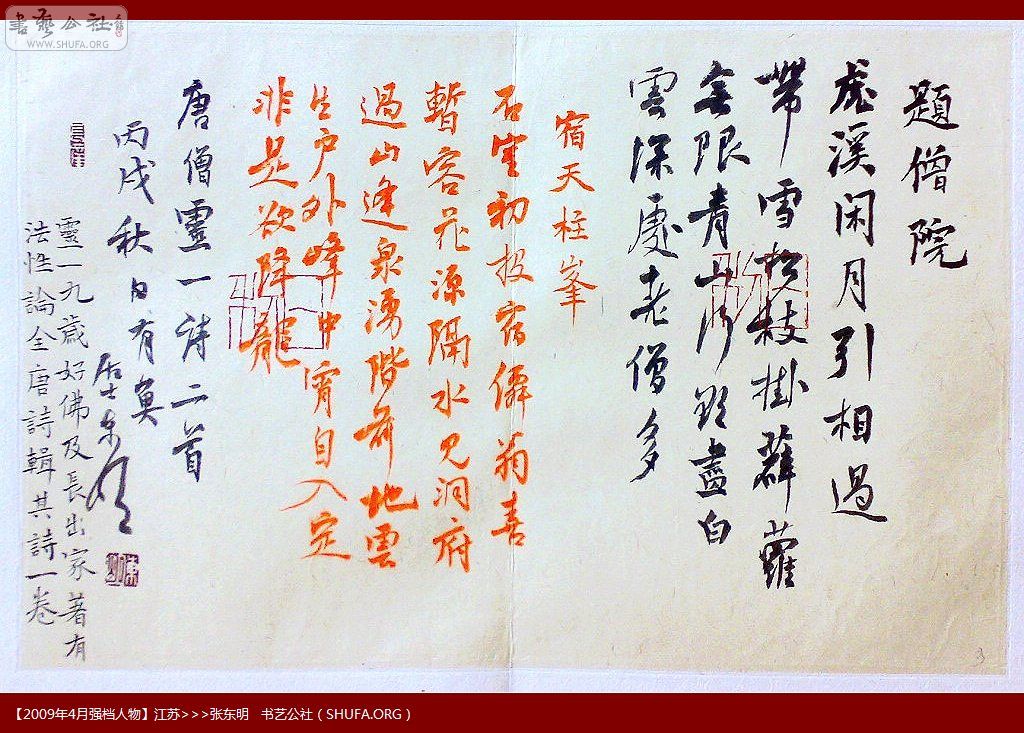 书艺公社
WWW.SHUFA.ORG
題僧院
虎溪闲月引相過
帶雪松枝掛薜蘿
無限青山行欲盡白
雲深處老僧多
宿天柱峯
石室初投宿僊翁喜
暫容花源隔水見洞府
過山逢泉湧階前地雲
生户外峰中宵自入定
非是欲降龍
唐僧靈一詩二首
丙戌秋日有奠
居士东明
靈一九歲好佛及長出家著有
法性論全唐詩輯其詩一卷
3
【2009年4月强档人物】江苏>>>张东明 书艺公社（SHUFA.ORG）